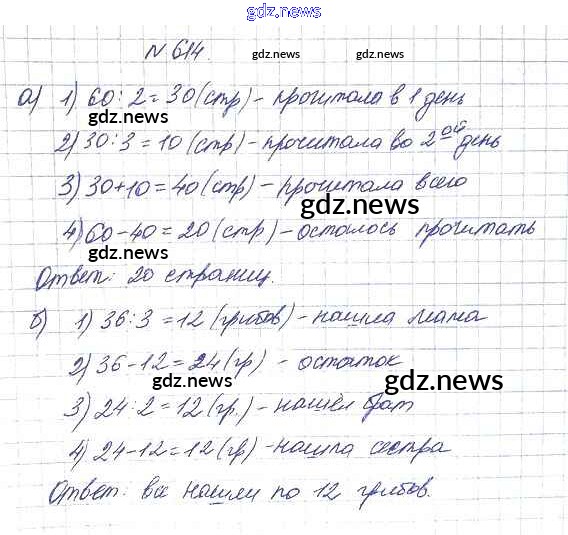 gdz.news
N 614.
gdz.news gdz.news
а) 1) 60 : 2 = 30 (стр) - прочитала в 1 день
gdz.news
2) 30 : 3 = 10 (стр) - прочитала во 2ой день
3) 30 + 10 = 40 (стр) - прочитала всего
gdz.news
4) 60 - 40 = 20 (стр) - осталось прочитать
Ответ: 20 страниц.
б) 1) 36 : 3 = 12 (грибов) - нашла мама
2) 36 - 12 = 24 (гр) - остаток
gdz.news gdz.news
3) 24 : 2 = 12 (гр.) - нашёл брат
4) 24 - 12 = 12 (гр) - нашла сестра
Ответ: все нашли по 12 грибов.